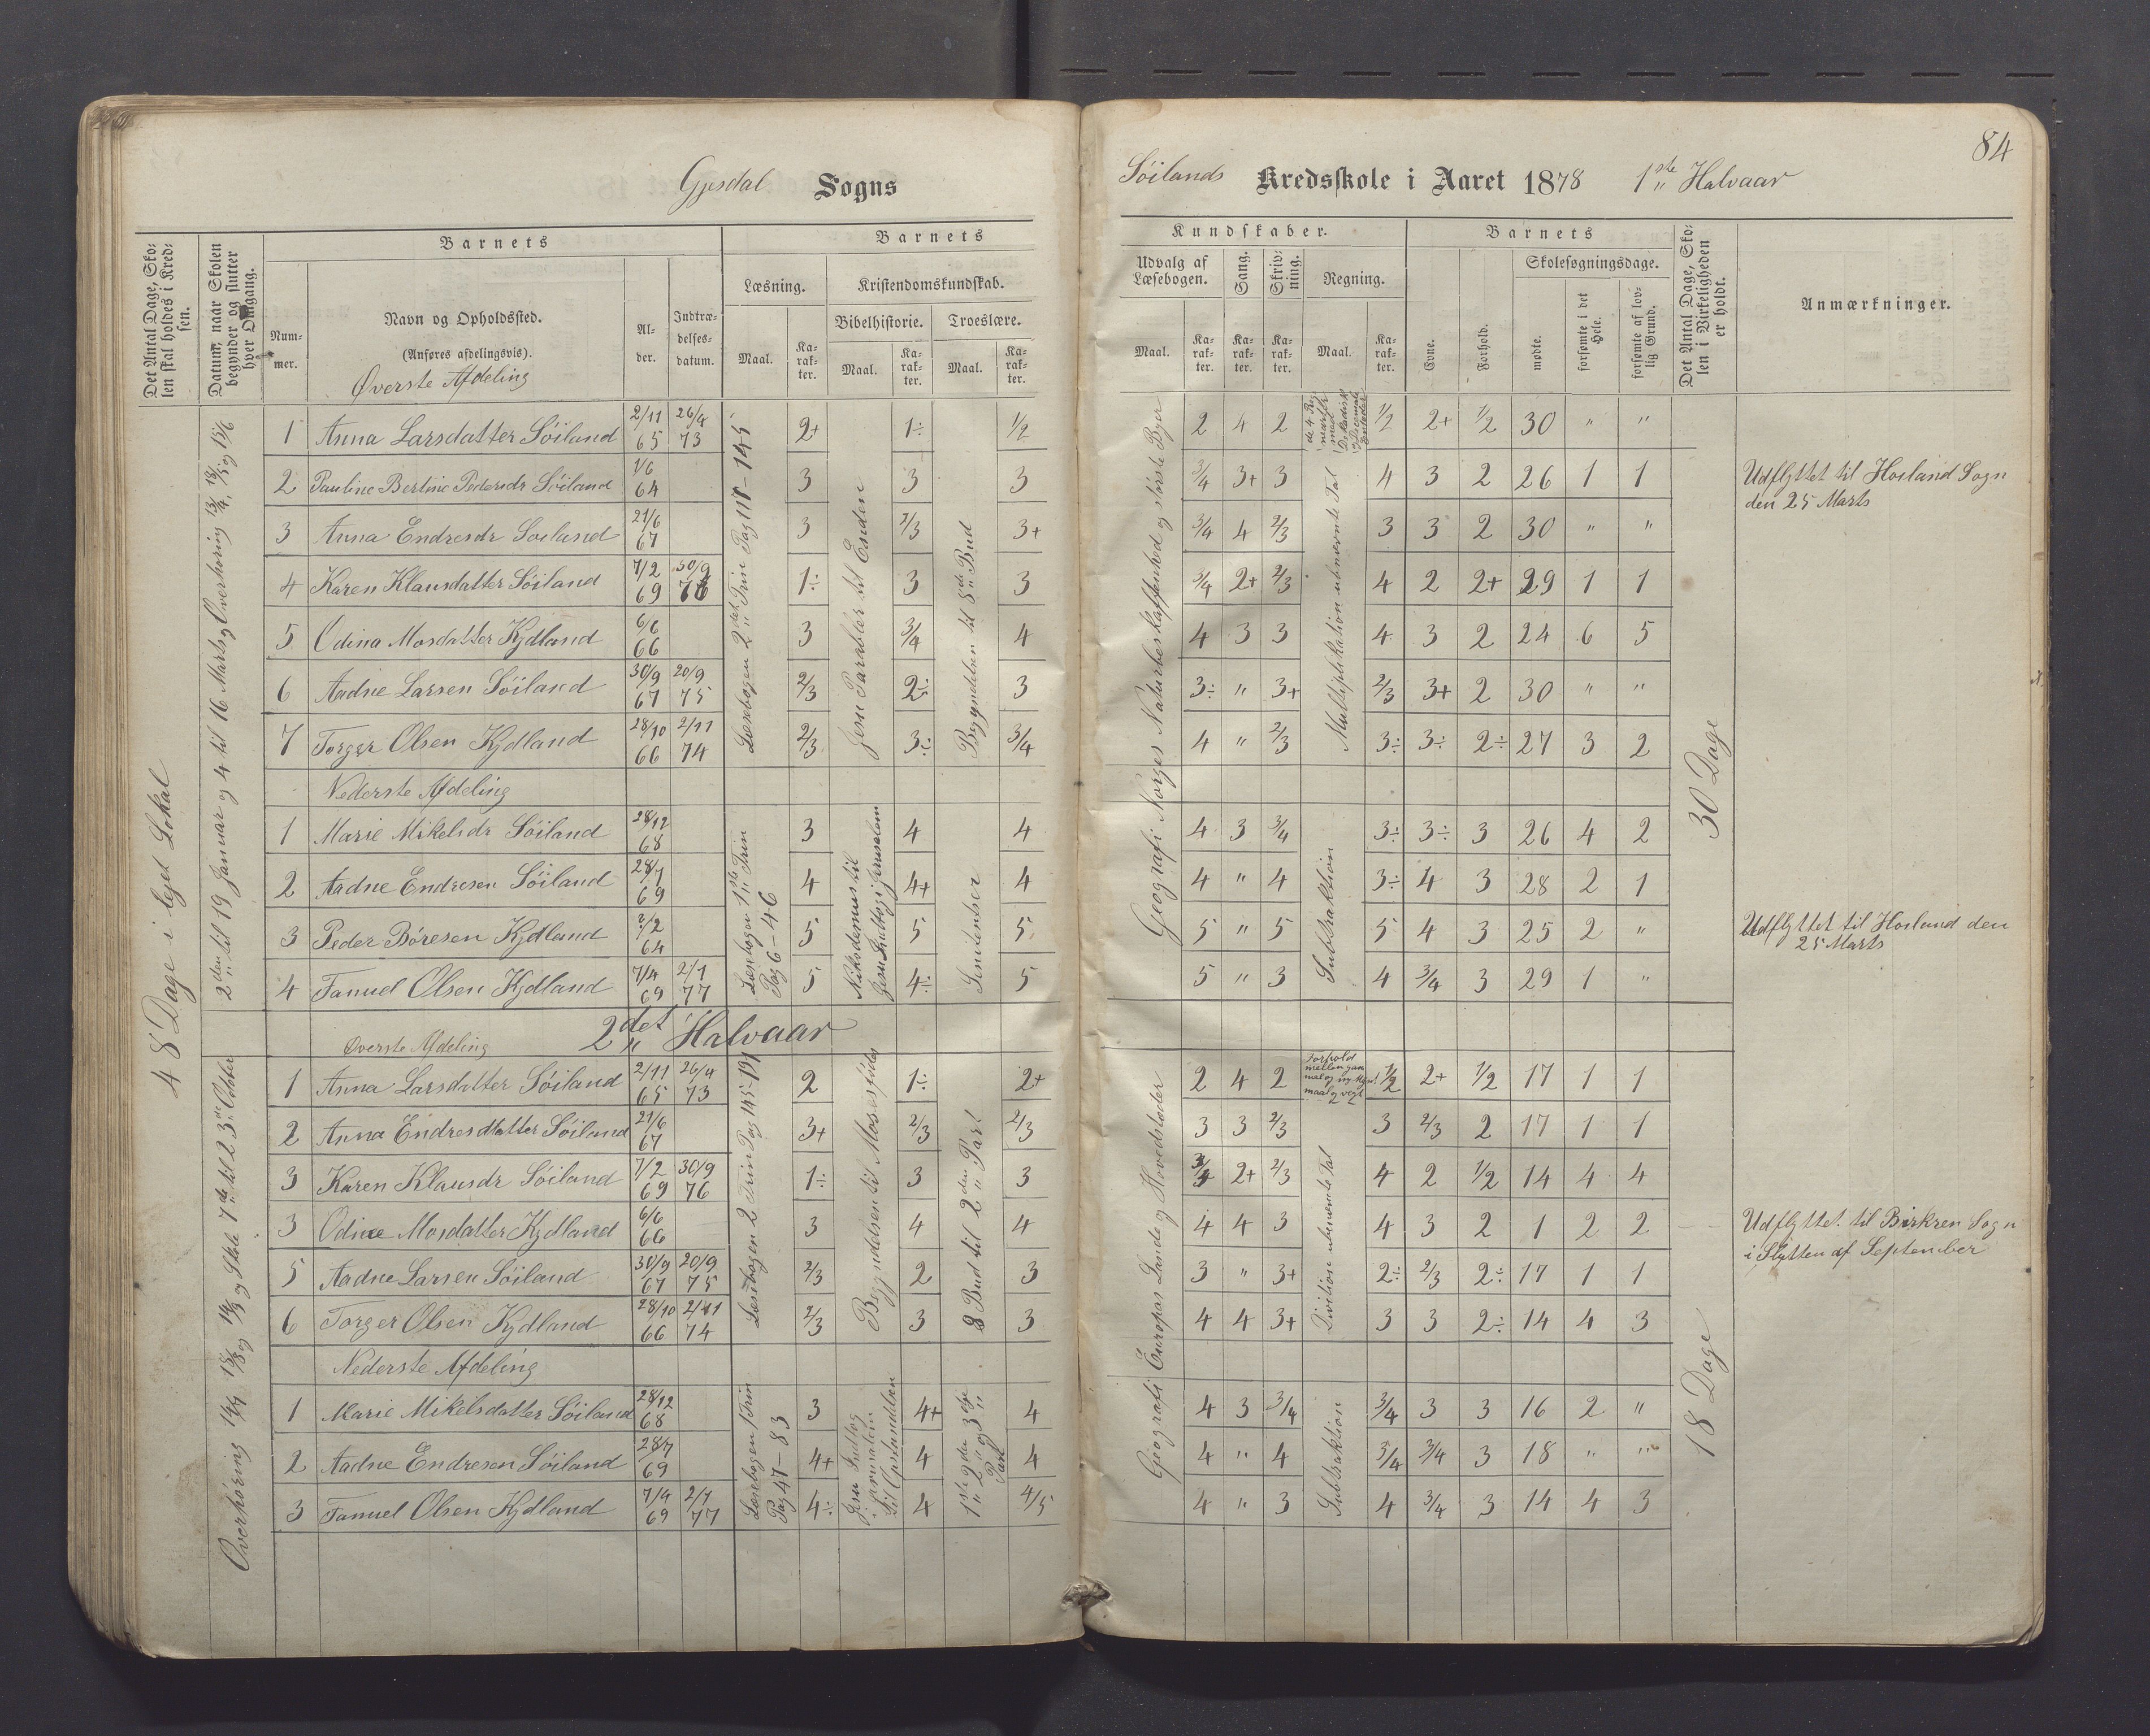 84
Gjesdal Sogns
Søilands Kredsskole i Aaret 1878 1ste Halvaar
Det Antal Dage, Skolen skal holdes i Kredsen.
Datum, naar Skolen begynder og slutter hver Omgang.
Barnets
Nummer.
Navn og Opholdssted.
(Anføres afdelingsvis).
Alder.
Indtrædelsesdatum.
Barnets
Læsning.
Maal.
Karakter.
Kristendomskundskab.
Bibelhistorie.
Maal.
Karakter.
Troeslære.
Maal.
Karakter.
Kundskaber.
Udvalg af Læsebogen.
Maal.
Karakter.
Sang.
Karakter.
Skrivning.
Karakter.
Regning.
Maal.
Karakter.
Barnets
Evne.
Forhold.
Skolesøgningsdage.
mødte.
forsømte i det Hele.
forsømte af lovlig Grund.
Det Antal Dage, Skolen i Virkeligheden er holdt.
Anmærkninger.
48 Dage i lejet Lokal
2den til 19 Januar og 4 til 16 Marts, Overhøring
Øverste Afdeling
Læsebogen 2det Trin Pag 117-145
Jesu Parabler til Enden
Begyndelsen til 5te Bud
Geografi Norges Naturbeskaffenhed og største Byer
Multiplikation ubenevnte Tal
30 Dage
1 Anna Larsdatter Søiland 2/11 65 26/4 73 2+ 1÷ 1/2 2 4 2 1/2 2+ 1/2 30 " "
2 Pauline Bertine Pedersdr Søiland 1/6 64 3 3 3 3/4 3+ 3 4 3 2 26 1 1 Udflyttet til Høiland Sogn
den 25 Marts
3 Anna Endresdr Søiland 21/6 67 3 2/3 3+ 3/4 4 2/3 3 3 2 30 " "
4 Karen Klausdatter Søiland 7/2 69 30/9 76 1÷ 3 3 3/4 2+ 2/3 4 2 2+ 29 1 1
5 Odina Mosdatter Kydland 6/6 66 3 3/4 4 4 3 3 4 3 2 24 6 5
6 Aadne Larsen Søiland 30/9 67 20/9 75 2/3 2÷ 3 3÷ " 3+ 2/3 3+ 2 30 " "
7 Torger Olsen Kydland 28/10 66 2/11 74 2/3 3÷ 3/4 4 " 2/3 3÷ 3÷ 2÷ 27 3 2
Nederste Afdeling
Læsebogen 1ste Trin
Pag 6-46
Nikodemus til
Jesu Indtog i Jerusalem
Sententser
Subtraktion
1 Marie Mikelsdr Søiland 28/12 68 3 4 4 4 3 3/4 3÷ 3÷ 3 26 4 2
2 Aadne Endresen Søiland 28/7 69 4 4+ 4 4 " 4 3÷ 4 3 28 2 1
3 Peder Børesen Kydland 2/2 64 5 5 5 5 " 5 5 4 3 25 2 " Udflyttet til Høiland den
25 Marts
4 Tanuel Olsen Kydland 7/4 69 2/1 77 5 4÷ 5 5 " 3 4 3/4 3 29 1 "
2det Halvaar
Øverste Afdeling
Læsebogen 2 Trin Pag 145-191
Begyndelsen til Moses fødes
8 Bud til 2den Part
Geografi Europas Lande og Hovedstæder
Forhold
mellem gam
Division ubenevnte Tal
18 Dage
1 Anna Larsdatter Søiland 2/11 65 26/4 73 2 1÷ 2+ 2 4 2 1/2 2+ 1/2 17 1 1
2 Anna Endresdatter Søiland 21/6 67 3+ 2/3 2/3 3 3 2/3 3 2/3 2 17 1 1
3 Karen Klausdr Søiland 7/2 69 30/9 76 1÷ 3 3 3/4 2+ 2/3 4 2 1/2 14 4 4
3 Odine Mosdatter Kydland 6/6 66 3 4 4 4 4 3 4 3 2 1 2 2 Udflyttet til Birkren Sogn
i Slytten af September
5 Aadne Larsen Søiland 30/9 67 20/9 75 2/3 2 3 3 " 3+ 2÷ 2/3 2÷ 17 1 1
6 Torger Olsen Kydland 28/10 66 2/11 74 2/3 3 3 4 4 3+ 3 3 2÷ 14 4 3
Nederste Afdeling
Læsebogen 1 Trin
Pag 47-83
Jesu Indtog
i Jerusalem
til Opstandelsen
Part
Subtraktion
1 Marie Mikelsdatter Søiland 28/12 68 3 4+ 4 4 3 3/4 3/4 3 3 16 2 "
2 Aadne Endresen Søiland 28/7 69 4+ 4 4 4 " 4 3/4 3/4 3 18 " "
3 Tanuel Olsen Kydland 7/4 69 2/1 77 4÷ 4 4/5 4 " 3 4 3/4 3 14 4 3